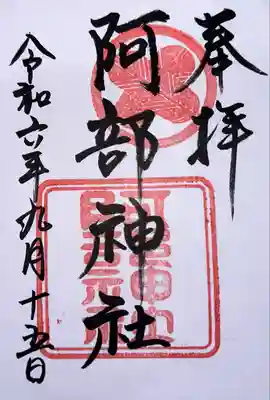 奉拝
阿部神社
令和六年九月十五日
阿部神社